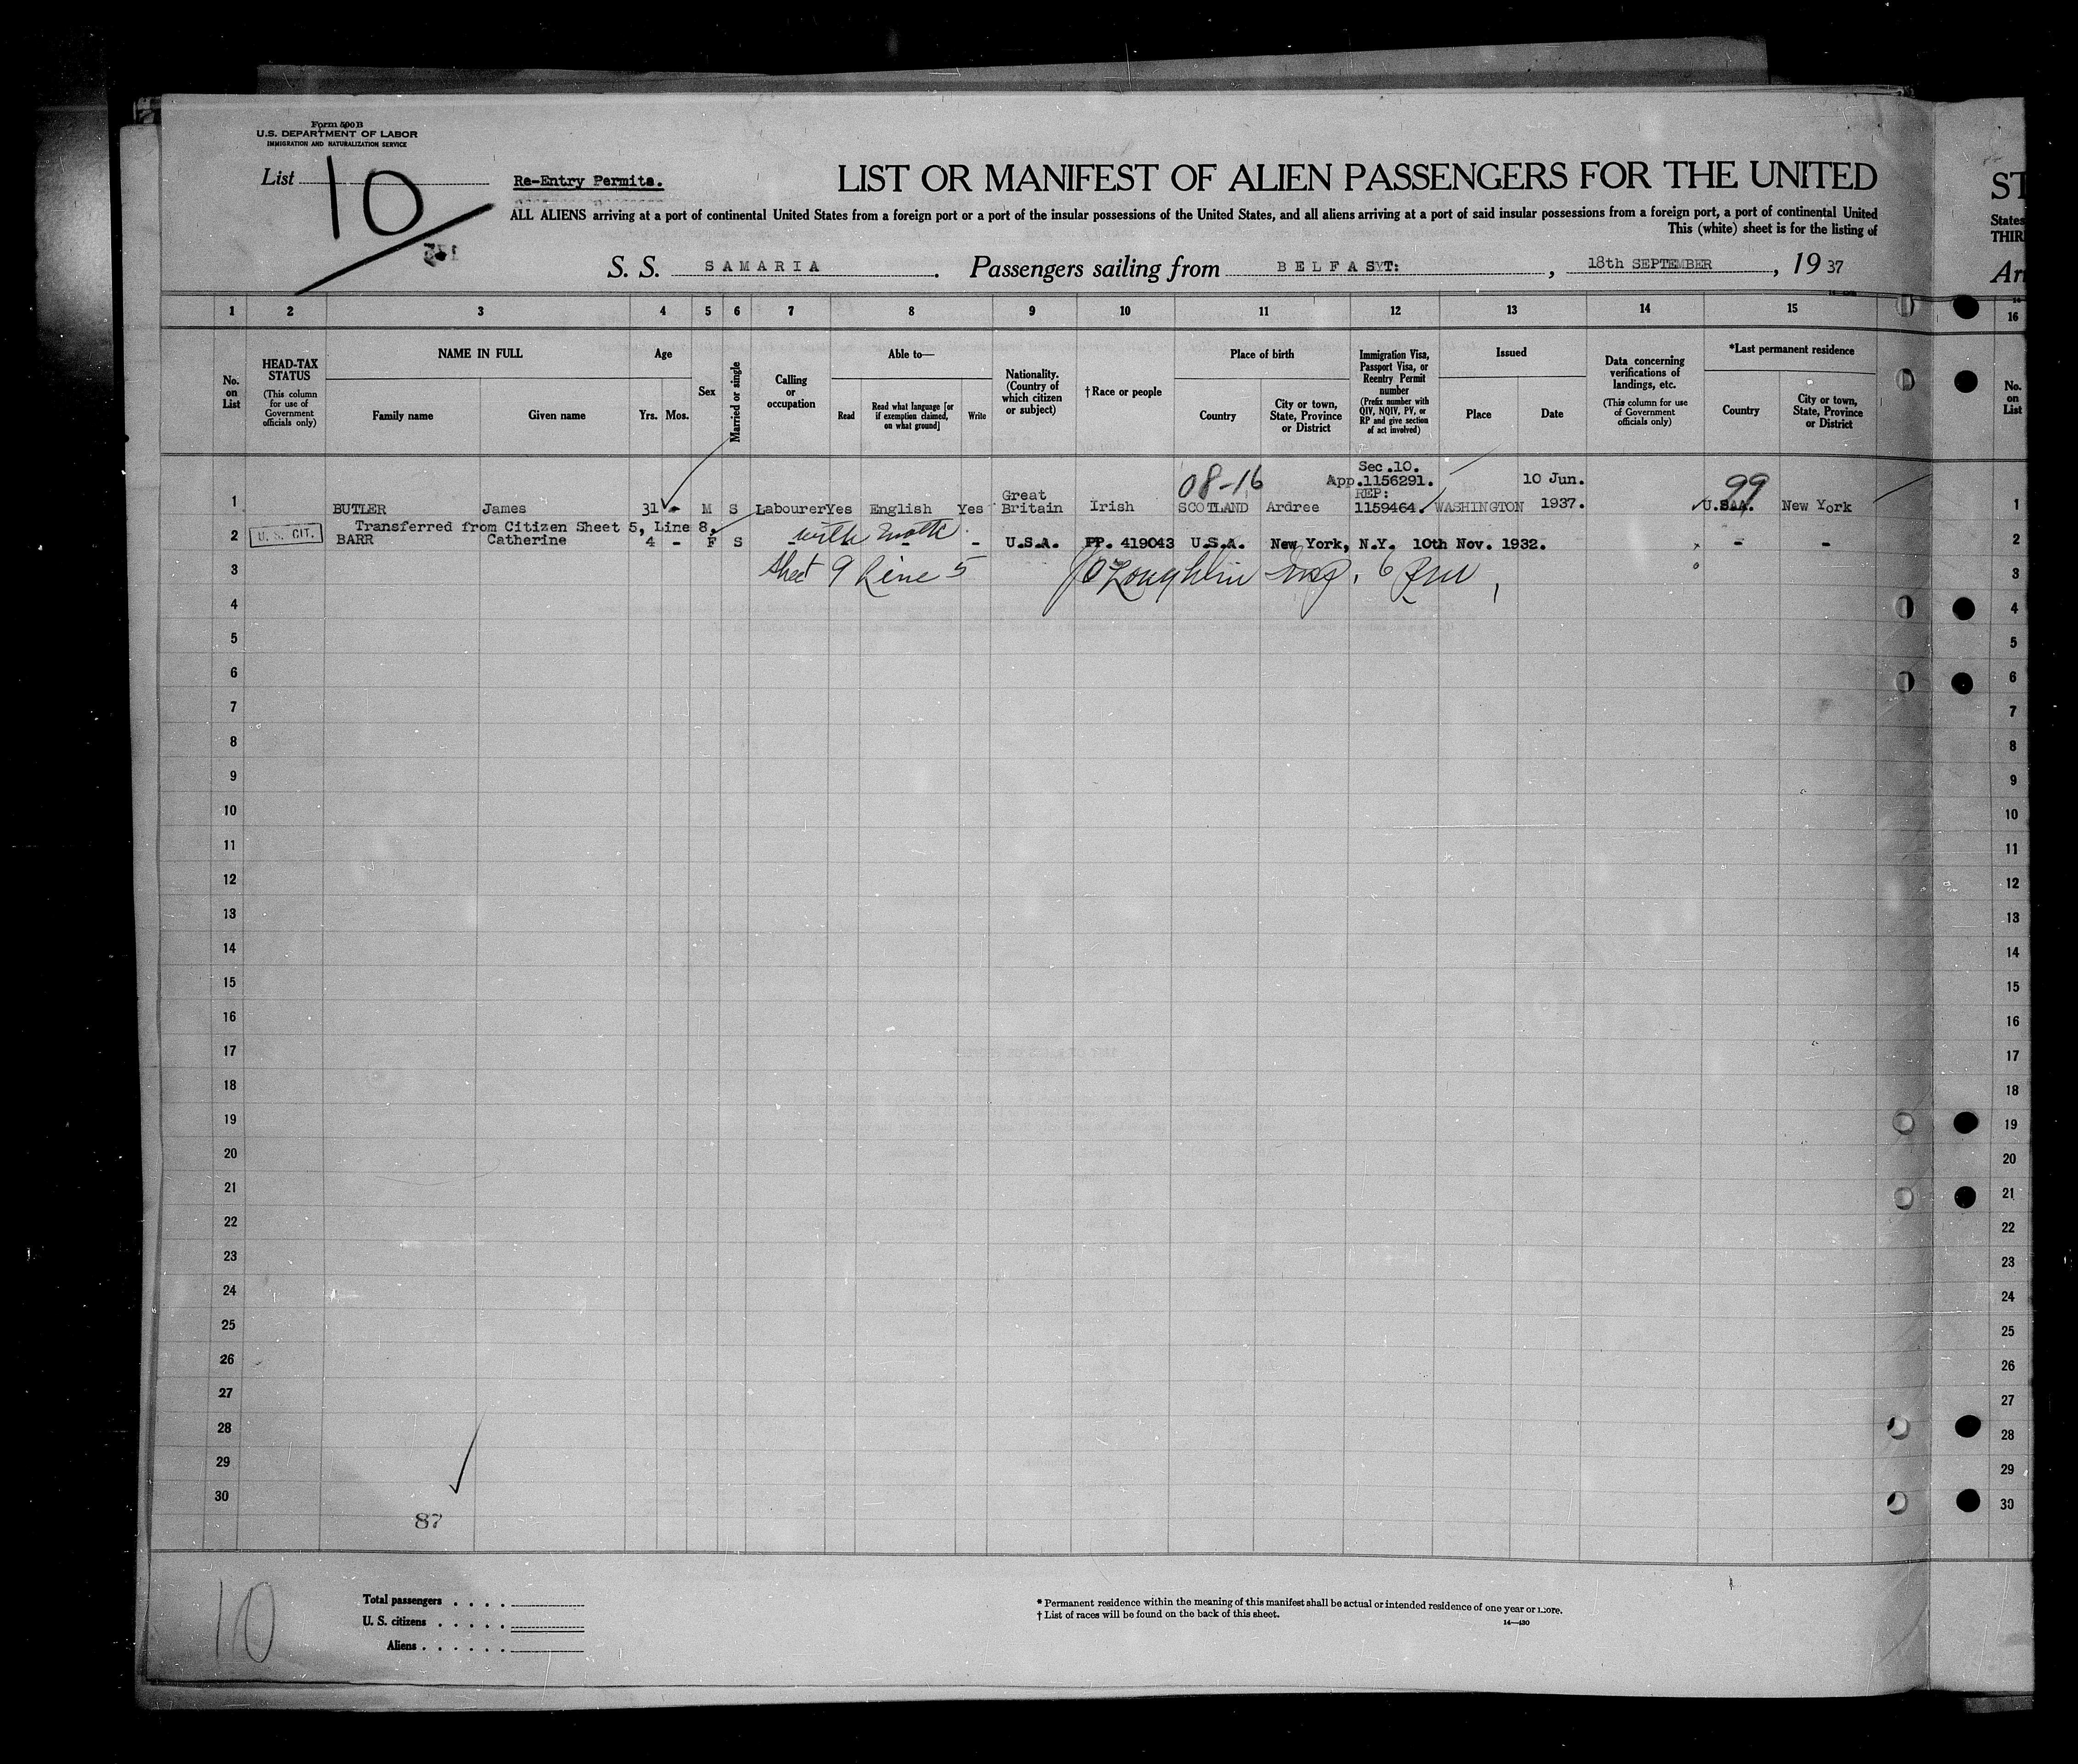 Form 500 B
U.S. DEPARTMENT OF LABOR
IMMIGRATION AND NATURALIZATION SERVICE
List 10
Re-Entry Permits.
LIST OR MANIFEST OF ALIEN PASSENGERS FOR THE UNITED
ST
ALL ALIENS arriving at a port of continental United States from a foreign port or a port of the insular possessions of the United States, and all aliens arriving at a port of said insular possessions from a foreign port, a port of continental United
States
This (white) sheet is for the listing of
THIR
S. S. SAMARIA. Passengers sailing from BELFAST:, 18th SEPTEMBER, 19 37
Arr
1 2 3 4 5 6 7 8 9 10 11 12 13 14 15
16
No. on List
HEAD-TAX STATUS (This column for use of Government officials only)
NAME IN FULL
Family name
Given name
Age
Yrs. Mos.
Sex
Married or single
Calling or occupation
Able to—
Read
Read what language [or if exemption claimed, on what ground]
Write
Nationality. (Country of which citizen or subject)
†Race or people
Place of birth
Country
City or town, State, Province or District
Immigration Visa, Passport Visa, or Reentry Permit number (Prefix number with QIV, NQIV, PV, or RP and give section of act involved)
Issued
Place
Date
Data concerning verifications of landings, etc. (This column for use of Government officials only)
*Last permanent residence
Country
City or town, State, Province or District
No. on List
Sec.10.
08-16 App.1156291. 10 Jun. 99
Great REP:
1 BUTLER James 31 - M S Labourer Yes English Yes Britain Irish SCOTLAND Ardree 1159464. WASHINGTON 1937. U.S.A. New York 1
Transferred from Citizen Sheet 5, Line 8,
2 U. S. CIT. BARR Catherine 4 - F S - with moth - - U.S.A. PP. 419043 U.S.A. New York, N.Y. 10th Nov. 1932. - - 2
3 Sheet 9 Line 5 J O'Loughlin Insp. 3
4 4
5 5
6 6
7 7
8 8
9 9
10 10
11 11
12 12
13 13
14 14
15 15
16 16
17 17
18 18
19 19
20 20
21 21
22 22
23 23
24 24
25 25
26 26
27 27
28 28
29 29
30 30
87
10
Total passengers . . . .
U. S. citizens . . . . .
Aliens . . . . . .
* Permanent residence within the meaning of this manifest shall be actual or intended residence of one year or more.
† List of races will be found on the back of this sheet.
14—430